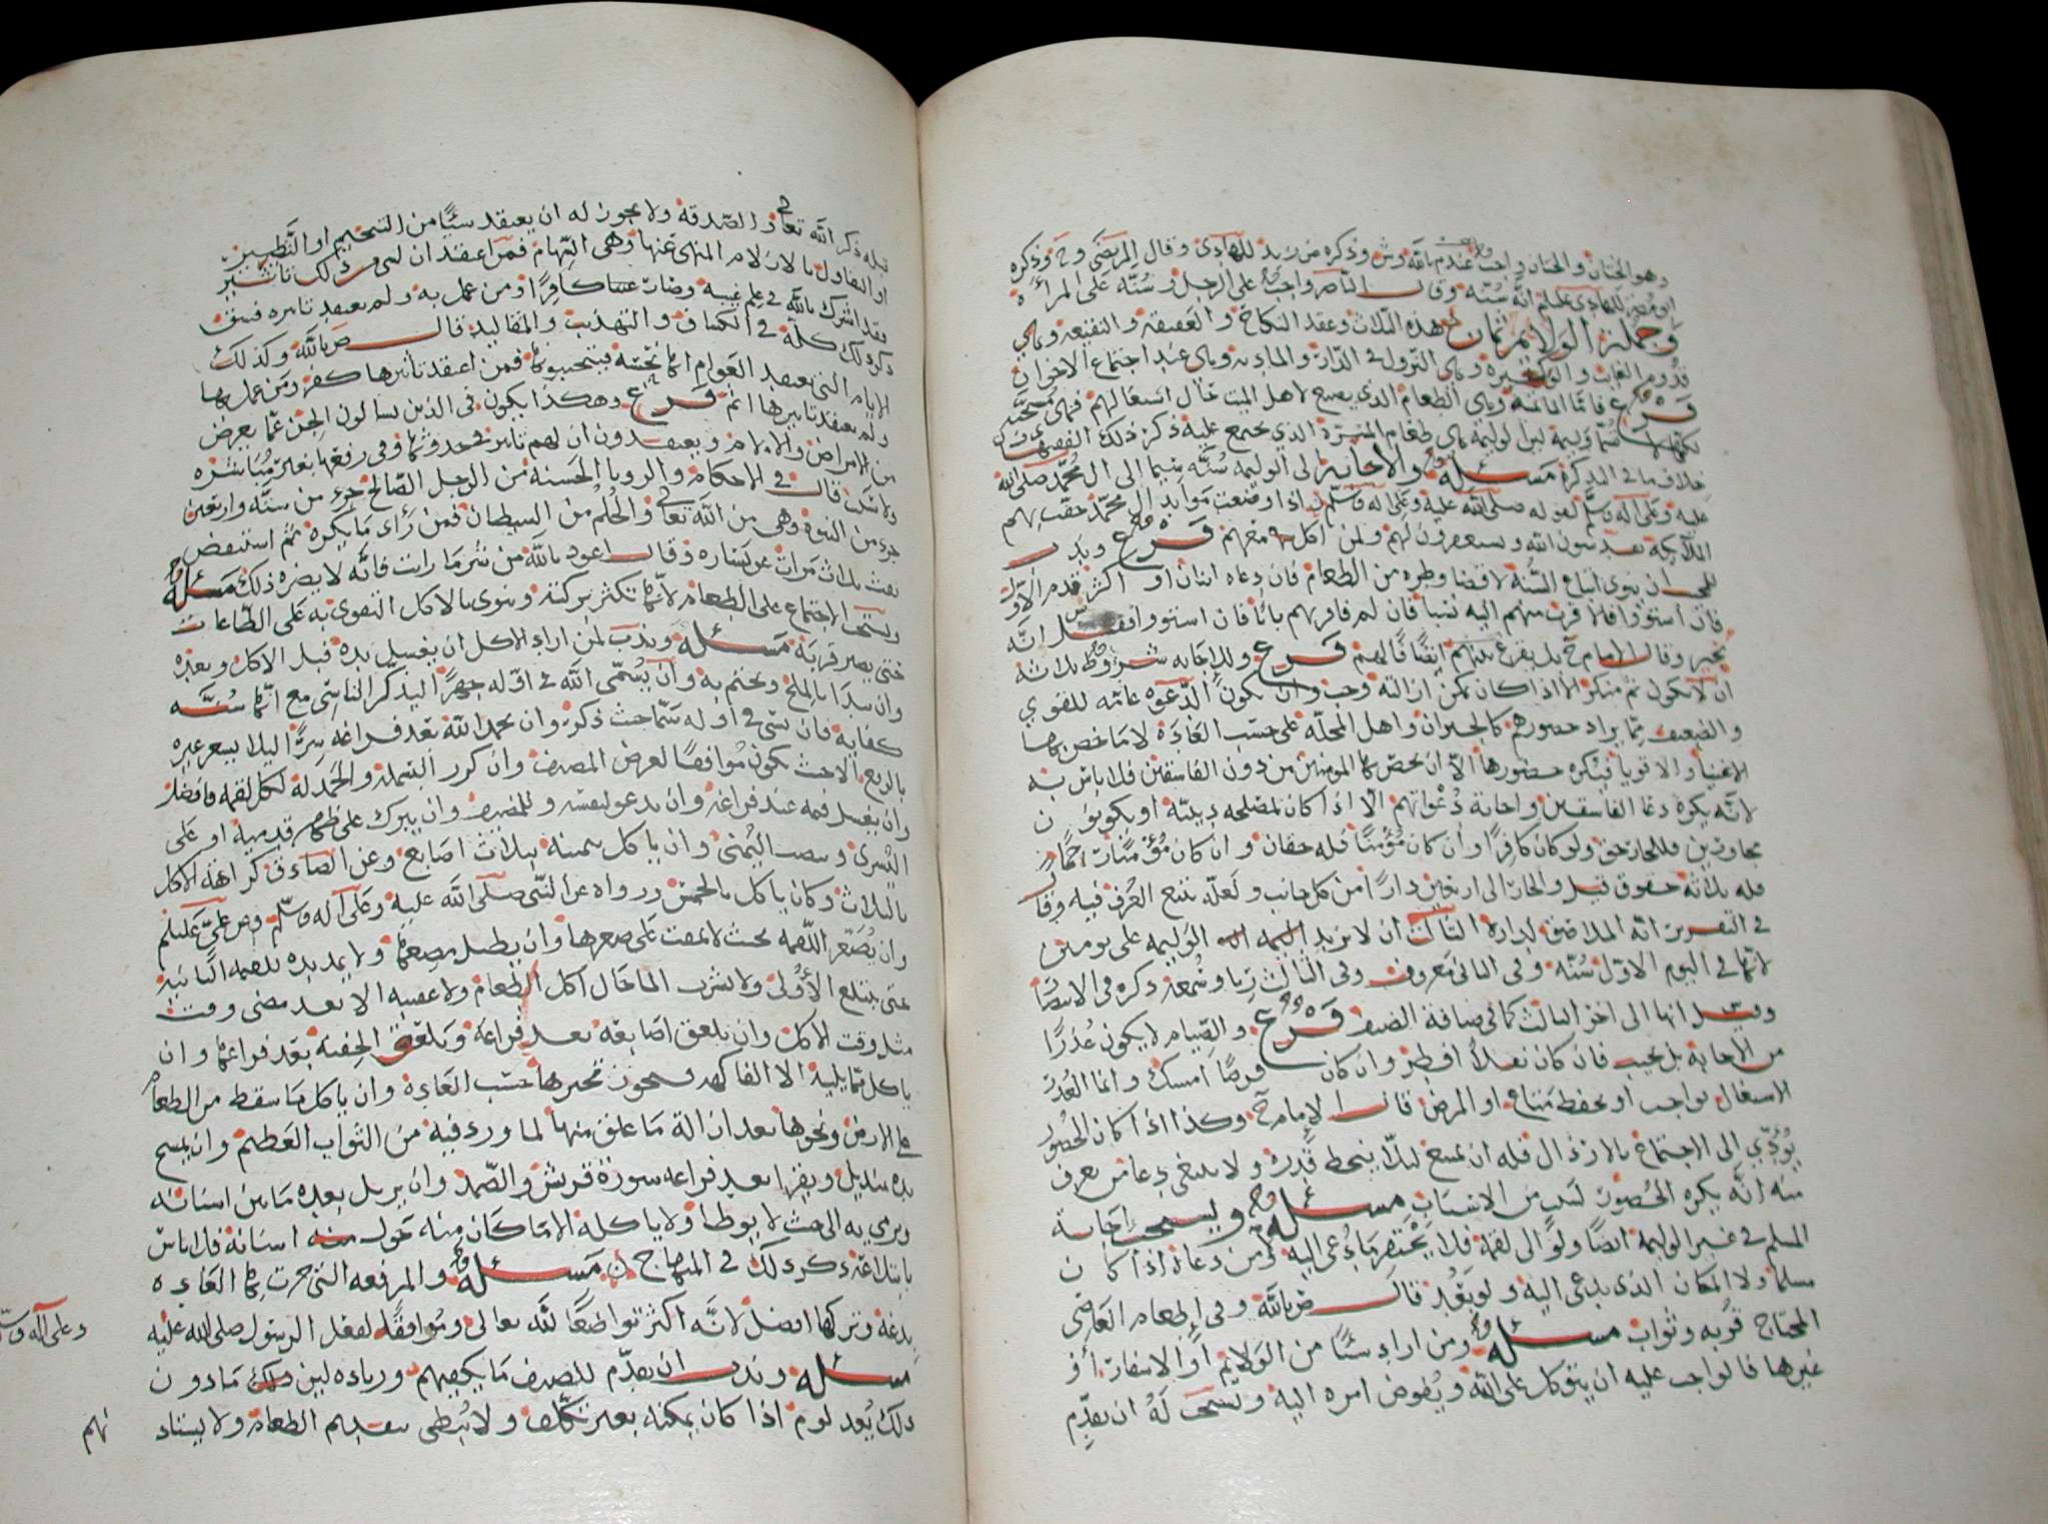 وهو الختان والختان واجب عندم بالله وش وذكره من زيد للهادي وقال المرتضى وح وذكره
انه سنه وقال الناصر واجب على الرجل وسنه على المرأة
وجملة الولائم ثمان هذه الثلاث وعقد النكاح والعقيقه والنقيعه وهي
قدوم الغائب والوكيره وهي النزول في الدار والمادبه وهي عند اجتماع الاخوان
فرع فاما الماتمه وهي الطعام الذي يصنع لاهل الميت حال اشتغالهم فهي مستحبه
وليمة الطعام الذي يجتمع عليه ذكر ذلك الفقيه ف
خلاف ما في التذكره مسئله والاجابه الى الوليمه سنه سيما الى ال محمد صلى الله
عليه وعلى آله وسلم لقوله صلى الله عليه وعلى اله وسلم اذا وضعت موايد ال محمد حفت بهم
الملائكه يقدسون الله ويستغفرون لهم ولمن اكل معهم فرع وندب
ان ينوي اتباع السنه لا قضا وطره من الطعام فان دعاه اثنان او اكثر قدم الاول
فان استووا فالاقرب منهم اليه نسبا فان لم فاقربهم بابا فان استووا فقيل انه
يخير وقال الامام ح بل يقرع بينهم ايضا فرع وللاجابه شروط ثلاثه
ان لا يكون ثم منكر الا اذا كان يمكن ازالته وجب وان يكون الدعوه عامه للقوي
والضعيف ممن يراد حضورهم كالجيران واهل المحله على حسب العاده لا ما خص بها
الاغنيا والاقويا فيكره حضورها الا ان يخص بها المومنين من دون الفاسقين فلا باس به
لانه يكره دعا الفاسقين واجابة دعواتهم الا اذا كان لمصلحه دينيه او يكونون
مجاورين فللجار حق ولو كان كافرا وان كان مؤمنا فله حقان وان كان مؤمنا رحما
فله ثلاثه حقوق قيل والجار الى اربعين دارا من كل جانب ولعله يتبع العرف فيه وقال
في التقرير انه الملاصق لداره الثالث ان لا يزيد الوليمه على يومين
لانها في اليوم الاول سنه وفي الثاني معروف وفي الثالث ريا وسمعه ذكره في الانتصار
وقيل انها الى اخر الثالث كما في ضيافة الضيف فرع والصيام لا يكون عذرا
من الاجابه بل يجيب فان كان نفلا افطر وان كان فرضا امسك وانما العذر
الاشتغال بواجب او بحفظ متاع او المرض قال الامام ح وكذا اذا كان الحضور
يؤدي الى الاجتماع بالارذال فله ان يمتنع ليلا ينحط قدره ولا ينبغي دعا من يعرف
منه انه يكره الحضور لسبب من الاسباب مسئله ويستحب اجابة
المسلم في غير الوليمه ايضا ولو الى لقمه فلا يحتقر ما دعي اليه ومن دعاه اذا كان
مسلما ولا المكان الذي يدعى اليه ولو بعد قال ض بالله وفي اطعام
المحتاج قربه وثواب مسئله ومن اراد شيئا من الولائم او الاسفار او
غيرها فالواجب عليه ان يتوكل على الله ويفوض امره اليه ويستحب له ان يقدم
قبله ذكر الله تعالى والصدقه ولا يجوز له ان يعتقد شيئا من التنجيم او التطير
او التفاول بالازلام المنهي عنها وهي السهام فمن اعتقد ان لشيء من ذلك تاثير
فقد اشرك بالله في علم غيبه وصار كافرا ومن عمل به ولم يعتقد تاثيره فسق
ذكر ذلك كله في الكشاف والتهذيب والمقاليد قال ض بالله وكذلك
الايام التي يعتقد العوام انها نحسه فيتجنبونها فمن اعتقد تأثيرها كفر ومن عمل بها
ولم يعتقد تاثيرها اثم فرع وهكذا يكون في الذين يسالون الجن عما يعرض
من الامراض والالام ويعتقدون ان لهم تاثير في حدوثها وفي رفعها بغير مباشره
ولا شك قال في الاحكام والرويا الحسنه من الرجل الصالح جزء من سته واربعين
جزء من النبوه وهي من الله تعالى والحلم من الشيطان فمن رأى ما يكره ثم استيقض
نفث ثلاث مرات عن يساره وقال اعوذ بالله من شر ما رايت فانه لا يضره ذلك مسئله
ويستحب الاجتماع على الطعام لانها تكثر بركته وينوي بالاكل التقوي به على الطاعات
حتى يصير قربه مسئله وندب لمن اراد الاكل ان يغسل يده قبل الاكل وبعده
وان يبدا بالملح ويختم به وان يسمي الله في اوله جهرا ليذكر الناسي مع انها سنه
كفايه فان نسي في اوله سما حيث ذكر وان يحمد الله بعد فراغه سرا ليلا يمنع غيره
بالرفع الا حيث يكون موافقا لغرض المضيف وان كرر البسمله والحمدله لكل لقمه فافضل
وان يغسل فمه عند فراغه وان يدعو لنفسه وللمضيف وان يبرك على ظهر قدميه او على
اليسرى وينصب اليمنى وان ياكل بيمينه بثلاث اصابع وعن الصادق كراهة الاكل
بالثلاث وكان ياكل بالخمس ورواه عن النبي صلى الله عليه وعلى آله وسلم وعن علي عليلم
وان يصغر اللقمه بحيث لا يمقت على صغرها وان يطيل مضغها ولا يمد يده للقمه الثانيه
حتى يبتلع الأولى ولا يشرب الما حال اكل الطعام ولا عقيبه الا بعد مضي وقت
مثل وقت الاكل وان يلعق اصابعه بعد فراغه ويلعق الجفنه بعد فراغها وان
ياكل مما يليه الا الفاكهه فيجوز تخيرها حسب العاده وان ياكل ما سقط من الطعام
على الارض ونحوها بعد ازالة ما علق منها لما ورد فيه من الثواب العظيم وان يمسح
يده بمنديل ويقرا بعد فراغه سورة قريش والصمد وان يزيل بعده ما بين اسنانه
ويرمي به الى حيث لا يوطا ولا ياكله الا ما كان منه حول اسنانه فلا باس
بابتلاعه ذكر ذلك في المنهاج مسئله والمرفعه التي جرت بها العاده
بدعه وتركها افضل لانه اكثر تواضعا لله تعالى وموافقه لفعل الرسول صلى الله عليه
وعلى آله وسلم
مسئله وندب ان يقدم للضيف ما يكفيهم وزياده لين ما دون
ذلك يعد لوم اذا كان يمكنه بغير تكلف ولا يبطي بتقديم الطعام ولا يستاذ
نهم